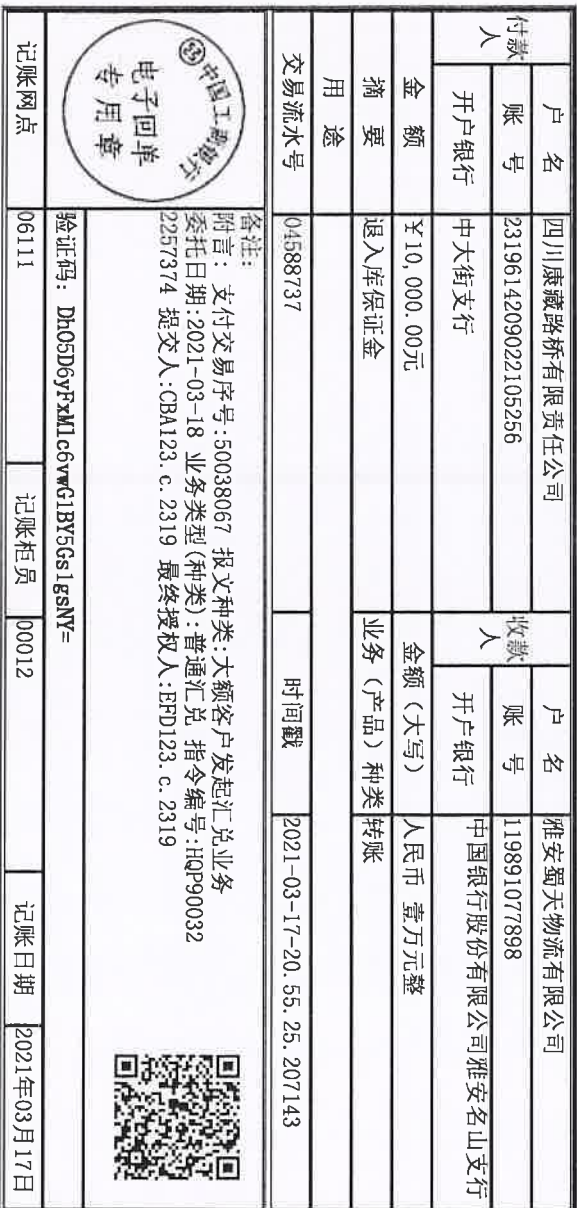 付款人 户名 四川康藏路桥有限责任公司 收款人 户名 雅安蜀天物流有限公司
账号 2319614209022105256 账号 119891077898
开户银行 中大街支行 开户银行 中国银行股份有限公司雅安名山支行
金额 ¥10,000.00元 金额（大写） 人民币 壹万元整
摘要 退入库保证金 业务（产品）种类 转账
用途
交易流水号 04588737 时间戳 2021-03-17-20.55.25.207143
中国工商银行
电子回单
专用章
备注:
附言: 支付交易序号:50038067 报文种类:大额客户发起汇兑业务
委托日期:2021-03-18 业务类型(种类):普通汇兑 指令编号:HQP90032
2257374 提交人:CBA123.c.2319 最终授权人:EFD123.c.2319
验证码: Dh05D6yFxMlc6vwG1BY5Gs1gsNY=
记账网点 06111 记账柜员 00012 记账日期 2021年03月17日